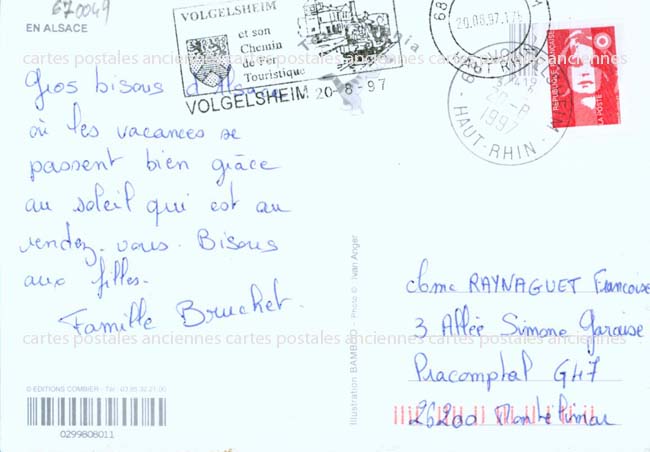 670049
EN ALSACE
VOLGELSHEIM
et son
Chemin
de Fer
Touristique
VOLGELSHEIM 20-8-97
20.08.97
HAUT RHIN
20-8
1997
HAUT-RHIN
RÉPUBLIQUE FRANÇAISE
LA POSTE
cartes postales anciennes cartes postales anciennes cartes postales anciennes
Gros bisous d'Alsace
où les vacances se
passent bien grâce
au soleil qui est au
rendez-vous. Bisous
aux filles.
Famille Bruchet.
Illustration BAMBOO - Photo © Ivan Anger
RAYNAGUET Françoise
3 Allée Simone Garaise
Pracomptal G47
26200 Montélimar
cartes postales anciennes cartes postales anciennes cartes postales anciennes
© EDITIONS COMBIER - Tél. 03.85.32.21.00
0299808011